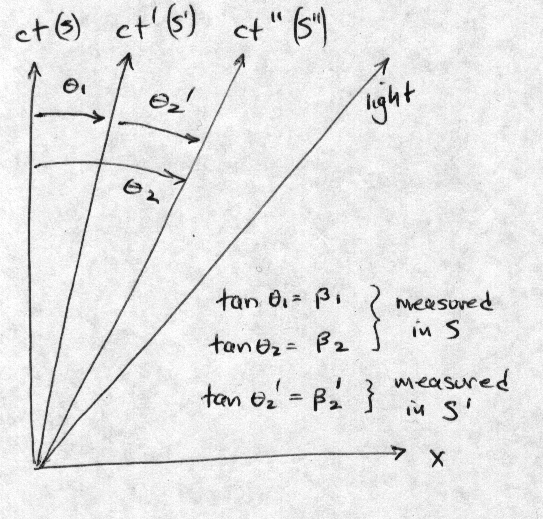 ct (s) ct' (s') ct'' (s'')
θ₁
θ₂'
light
θ₂
tan θ₁ = β₁
tan θ₂ = β₂
} measured in S
tan θ₂' = β₂' } measured in S'
x